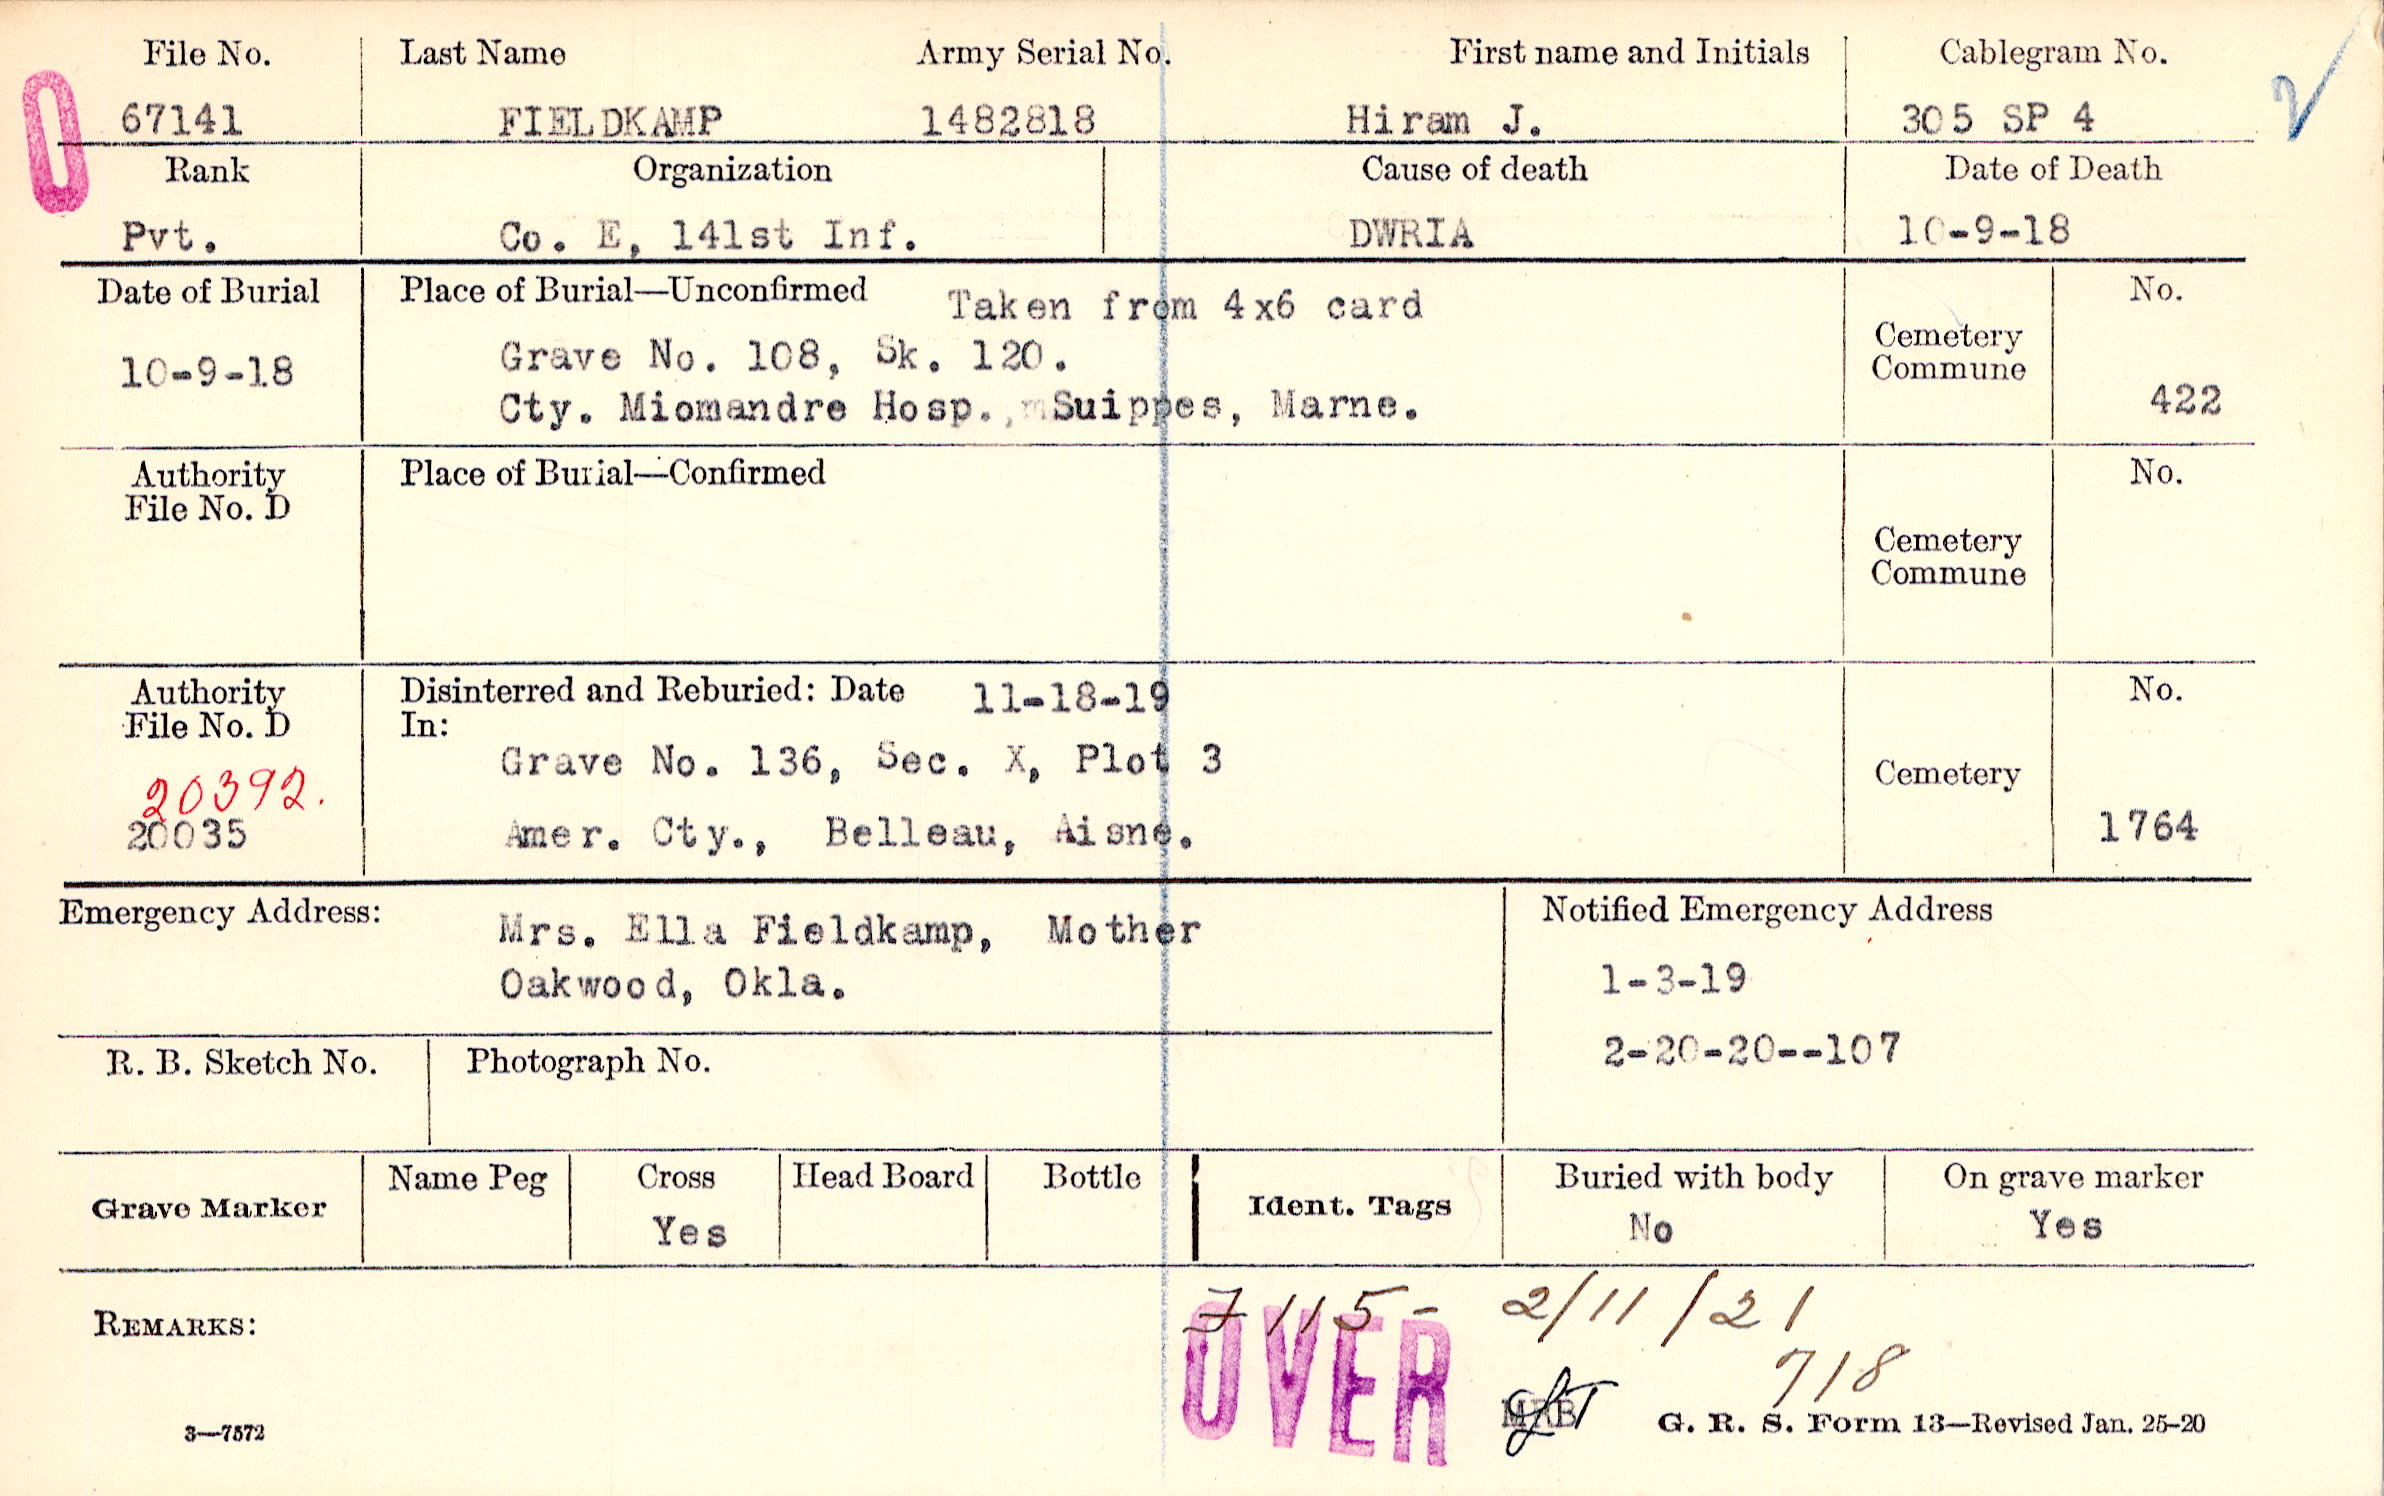 File No. Last Name Army Serial No. First name and Initials Cablegram No.
67141 FIELDKAMP 1482818 Hiram J. 305 SP 4
Rank Organization Cause of death Date of Death
Pvt. Co. E, 141st Inf. DWRIA 10-9-18
Date of Burial Place of Burial—Unconfirmed Taken from 4x6 card No.
10-9-18 Grave No. 108, Sk. 120. Cemetery
Commune
Cty. Miomandre Hosp., Suippes, Marne. 422
Authority Place of Burial—Confirmed No.
File No. D
Cemetery
Commune
Authority Disinterred and Reburied: Date 11-18-19 No.
File No. D In:
20392. Grave No. 136, Sec. X, Plot 3 Cemetery
20035 Amer. Cty., Belleau, Aisne. 1764
Emergency Address: Mrs. Ella Fieldkamp, Mother Notified Emergency Address
Oakwood, Okla. 1-3-19
2-20-20--107
R. B. Sketch No. Photograph No.
Grave Marker Name Peg Cross Head Board Bottle Ident. Tags Buried with body On grave marker
Yes No Yes
7115- 2/11/21
REMARKS: OVER
718
MRB
3—7572 G. R. S. Form 13—Revised Jan. 25-20